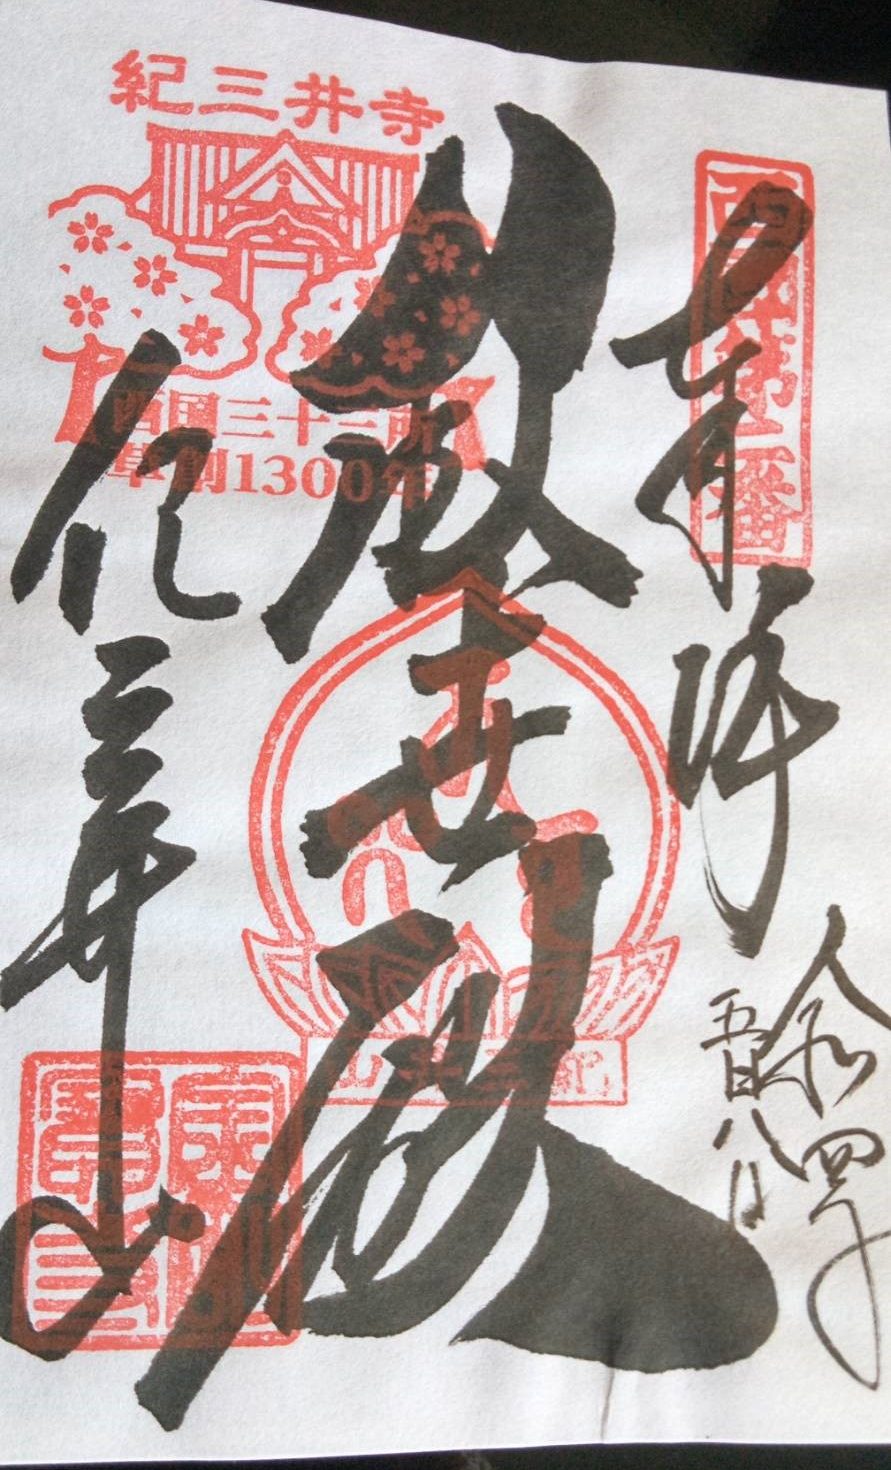 西国第二番
奉拝
令和四年
五月八日
紀三井寺
西国三十三所
草創1300年
救世殿
紀三井山
紀三井